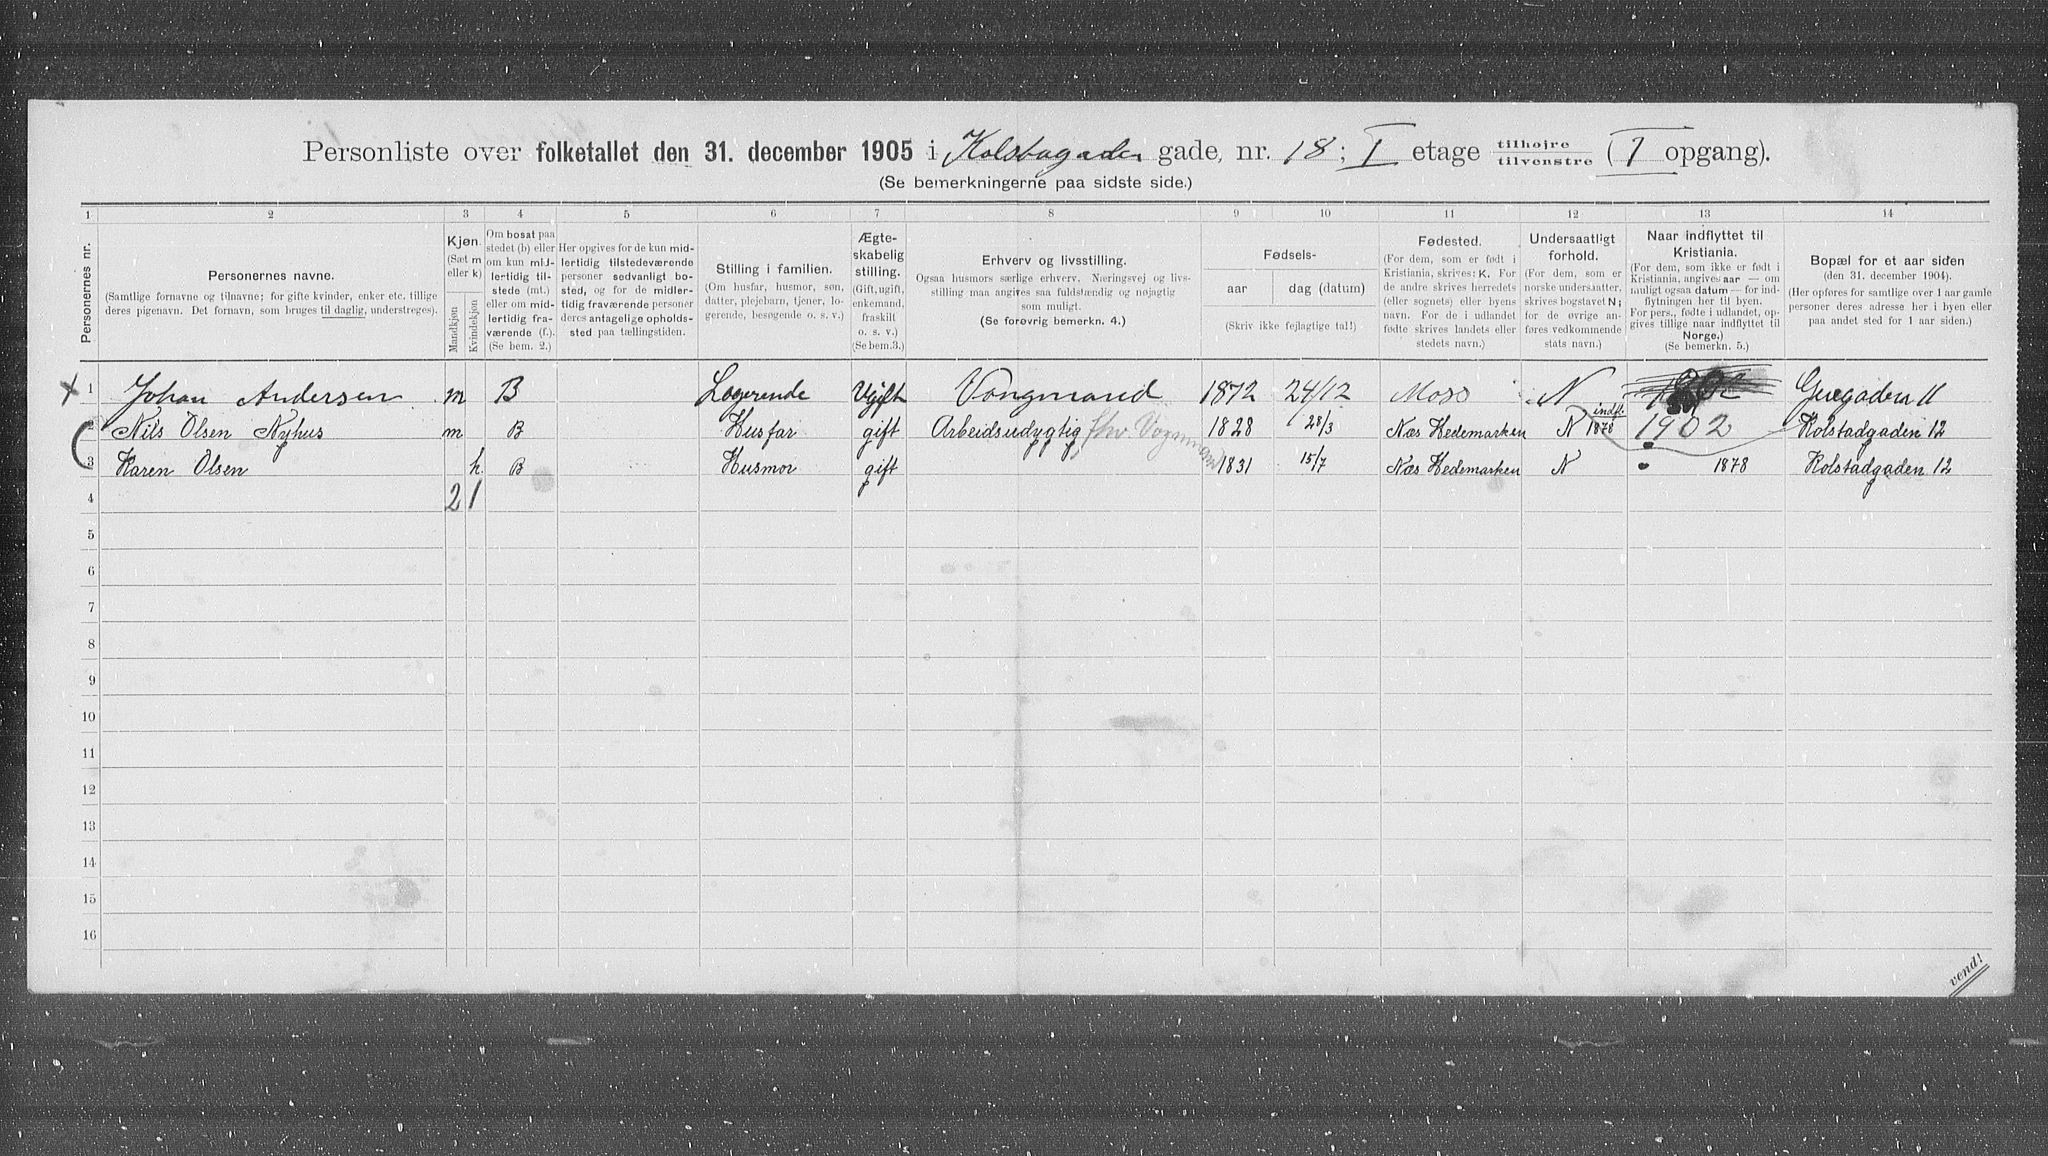 Personliste over folketallet den 31. december 1905 i Kolstagaden gade, nr. 18; I etage tilhøjre tilvenstre (1 opgang).
(Se bemerkningerne paa sidste side.)
1 2 3 4 5 6 7 8 9 10 11 12 13 14
Personernes nr.
Personernes navne.
(Samtlige fornavne og tilnavne; for gifte kvinder, enker etc. tillige
deres pigenavn. Det fornavn, som bruges til daglig, understreges).
Kjøn.
(Sæt m
eller k)
Mandkjøn
Kvindekjøn
Om bosat paa
stedet (b) eller
om kun mid-
lertidig til-
stede (mt.)
eller om mid-
lertidig fra-
værende (f.).
(Se bem. 2.)
Her opgives for de kun mid-
lertidig tilstedeværende
personer sedvanligt bo-
sted, og for de midler-
tidig fraværende personer
deres antagelige opholds-
sted paa tællingstiden.
Stilling i familien.
(Om husfar, husmor, søn,
datter, plejebarn, tjener, lo-
gerende, besøgende o. s. v.)
Ægte-
skabelig
stilling.
(Gift, ugift,
enkemand,
fraskilt
o. s. v.)
(Se bem.3.)
Erhverv og livsstilling.
Ogsaa husmors særlige erhverv. Næringsvej og livs-
stilling maa angives saa fuldstændig og nøjagtig
som muligt.
(Se forøvrig bemerkn. 4.)
Fødsels-
aar
dag (datum)
(Skriv ikke fejlagtige tal!)
Fødested.
(For dem, som er født i
Kristiania, skrives: K. For
de andre skrives herredets
(eller sognets) eller byens
navn. For de i udlandet
fødte skrives landets eller
stedets navn.)
Undersaatligt
forhold.
(For dem, som er
norske undersaatter,
skrives bogstavet N;
for de øvrige an-
føres vedkommende
stats navn.)
Naar indflyttet til
Kristiania.
(For dem, som ikke er født i
Kristiania, angives aar — om
muligt ogsaa datum — for ind-
flytningen her til byen.
For pers., fødte i udlandet, op-
gives tillige naar indflyttet til
Norge.)
(Se bemerkn. 5.)
Bopæl for et aar siden
(den 31. december 1904).
(Her opføres for samtlige over 1 aar gamle
personer deres adresse her i byen eller
paa andet sted for 1 aar siden.)
1 Johan Andersen m B Logerende Ugift Vongmand 1872 24/12 Moss N
2 Nils Olsen Nyhus m B Husfar gift Arbeidsudygtig fhv. Vognmand 1828 28/3 Næs Hedemarken N indfl. 1878 1902 Kolstadgaden 12
3 Karen Olsen k. B Husmor gift 1831 15/7 Næs Hedemarken N 1878 Kolstadgaden 12
4 2 1
5
6
7
8
9
10
11
12
13
14
15
16
vend!